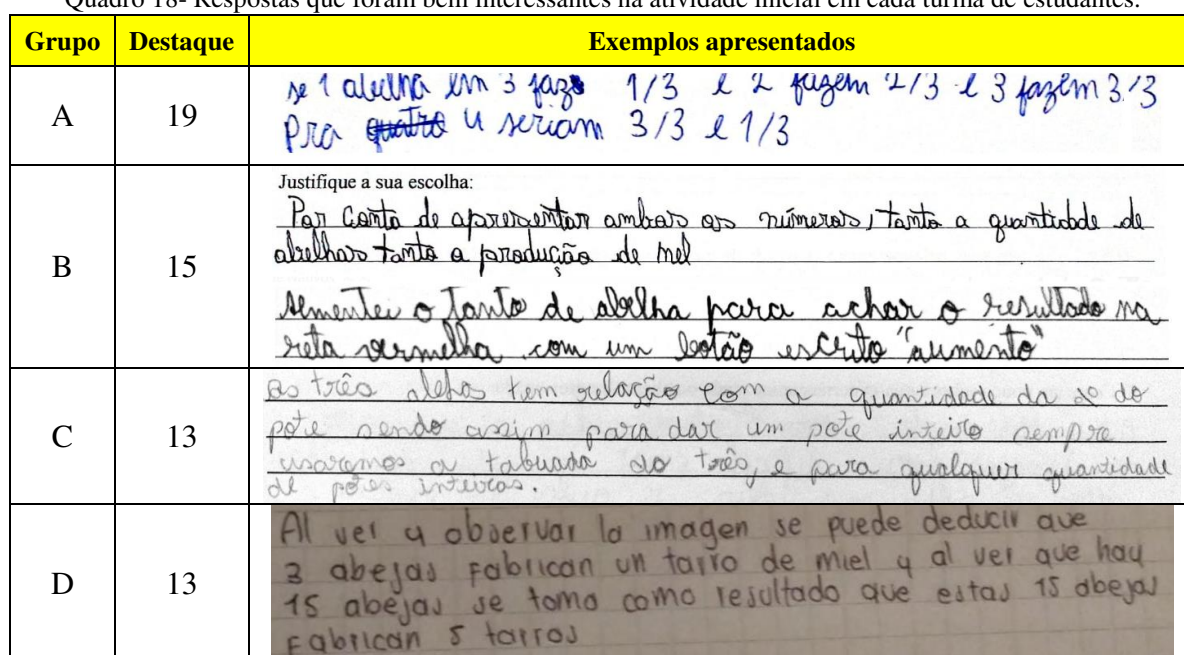 Quadro 18- Respostas que foram bem interessantes na atividade inicial em cada turma de estudantes.
Grupo Destaque Exemplos apresentados
A 19
se 1 abelha em 3 faz 1/3 e 2 fazem 2/3 e 3 fazem 3/3
Pra quatro 4 seriam 3/3 e 1/3
B 15
Justifique a sua escolha:
Por conta de apresentar ambos os números, tanto a quantidade de
abelhas tanto a produção de mel
o tanto de abelha para achar o resultado na
reta vermelha com um botão escrito "aumento"
C 13
as três tem relação com a quantidade da do
pote sendo assim para dar um pote inteiro sempre
usaremos a tabuada do três, e para qualquer quantidade
de potes inteiros.
D 13
Al ver y observar la imagen se puede deducir que
3 abejas fabrican un tarro de miel y al ver que hay
15 abejas se toma como resultado que estas 15 abejas
Fabrican 5 tarros